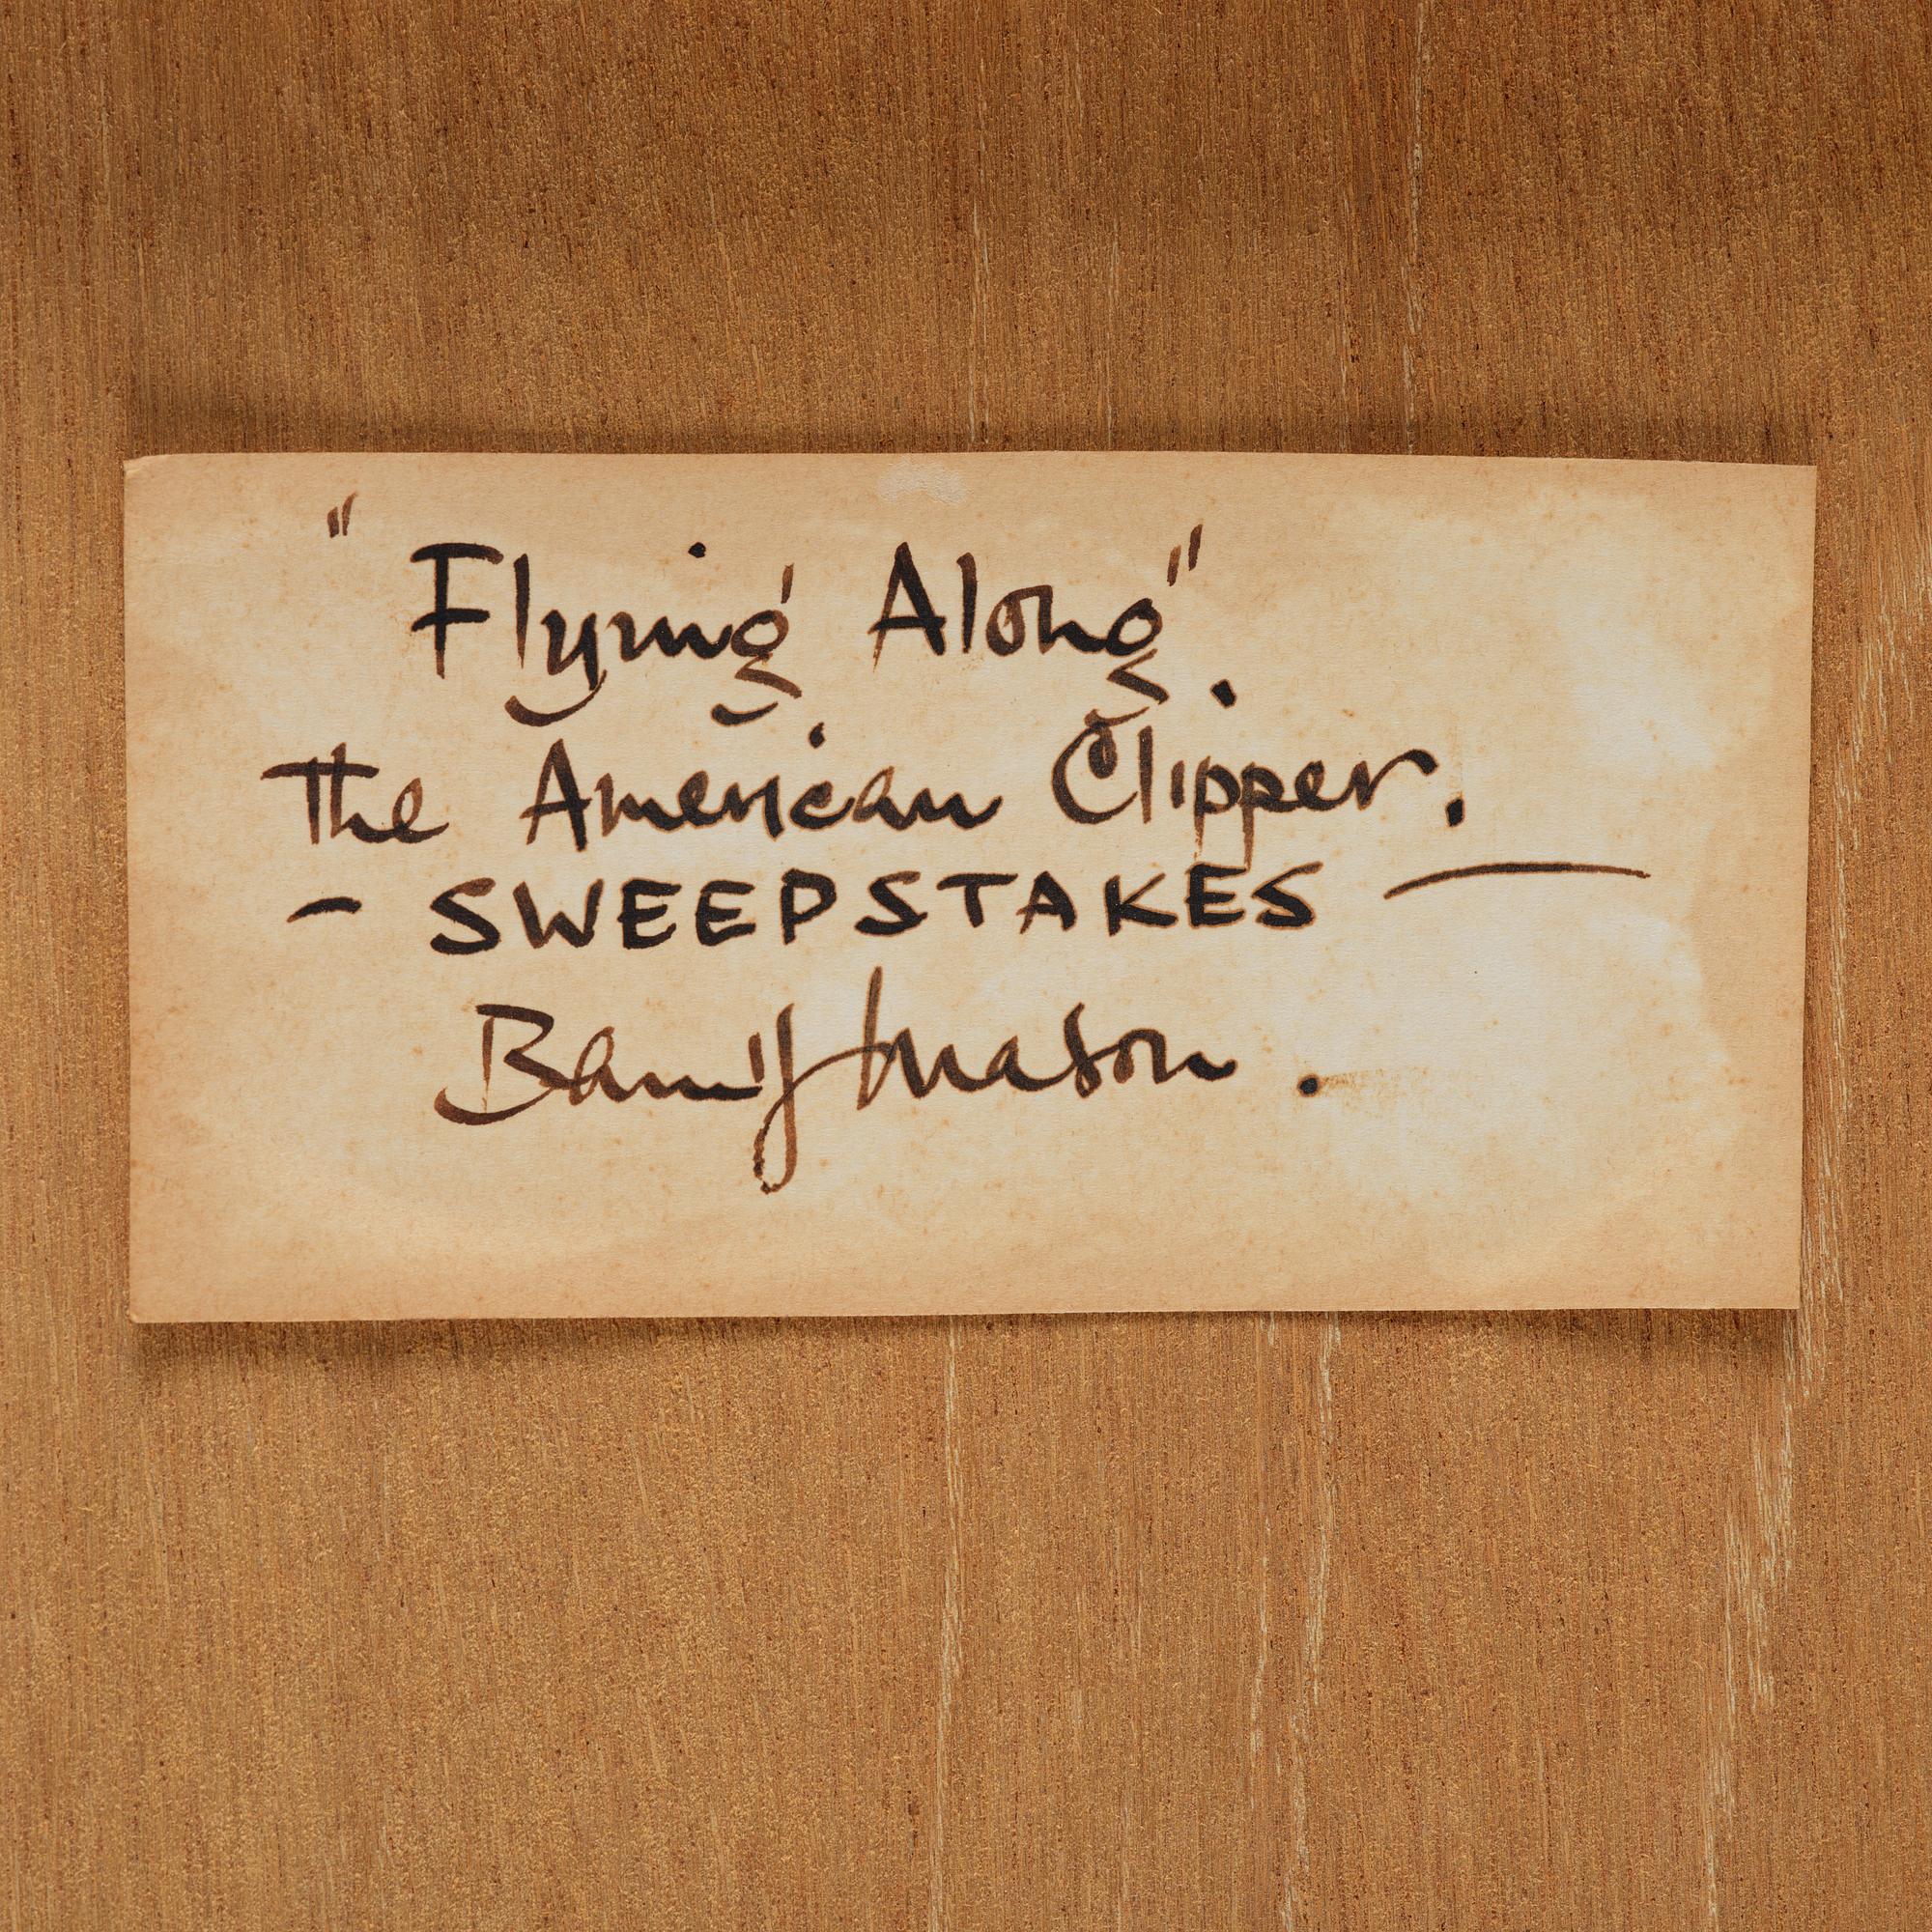 "Flying Along".
The American Clipper.
- SWEEPSTAKES —
Barry Mason.